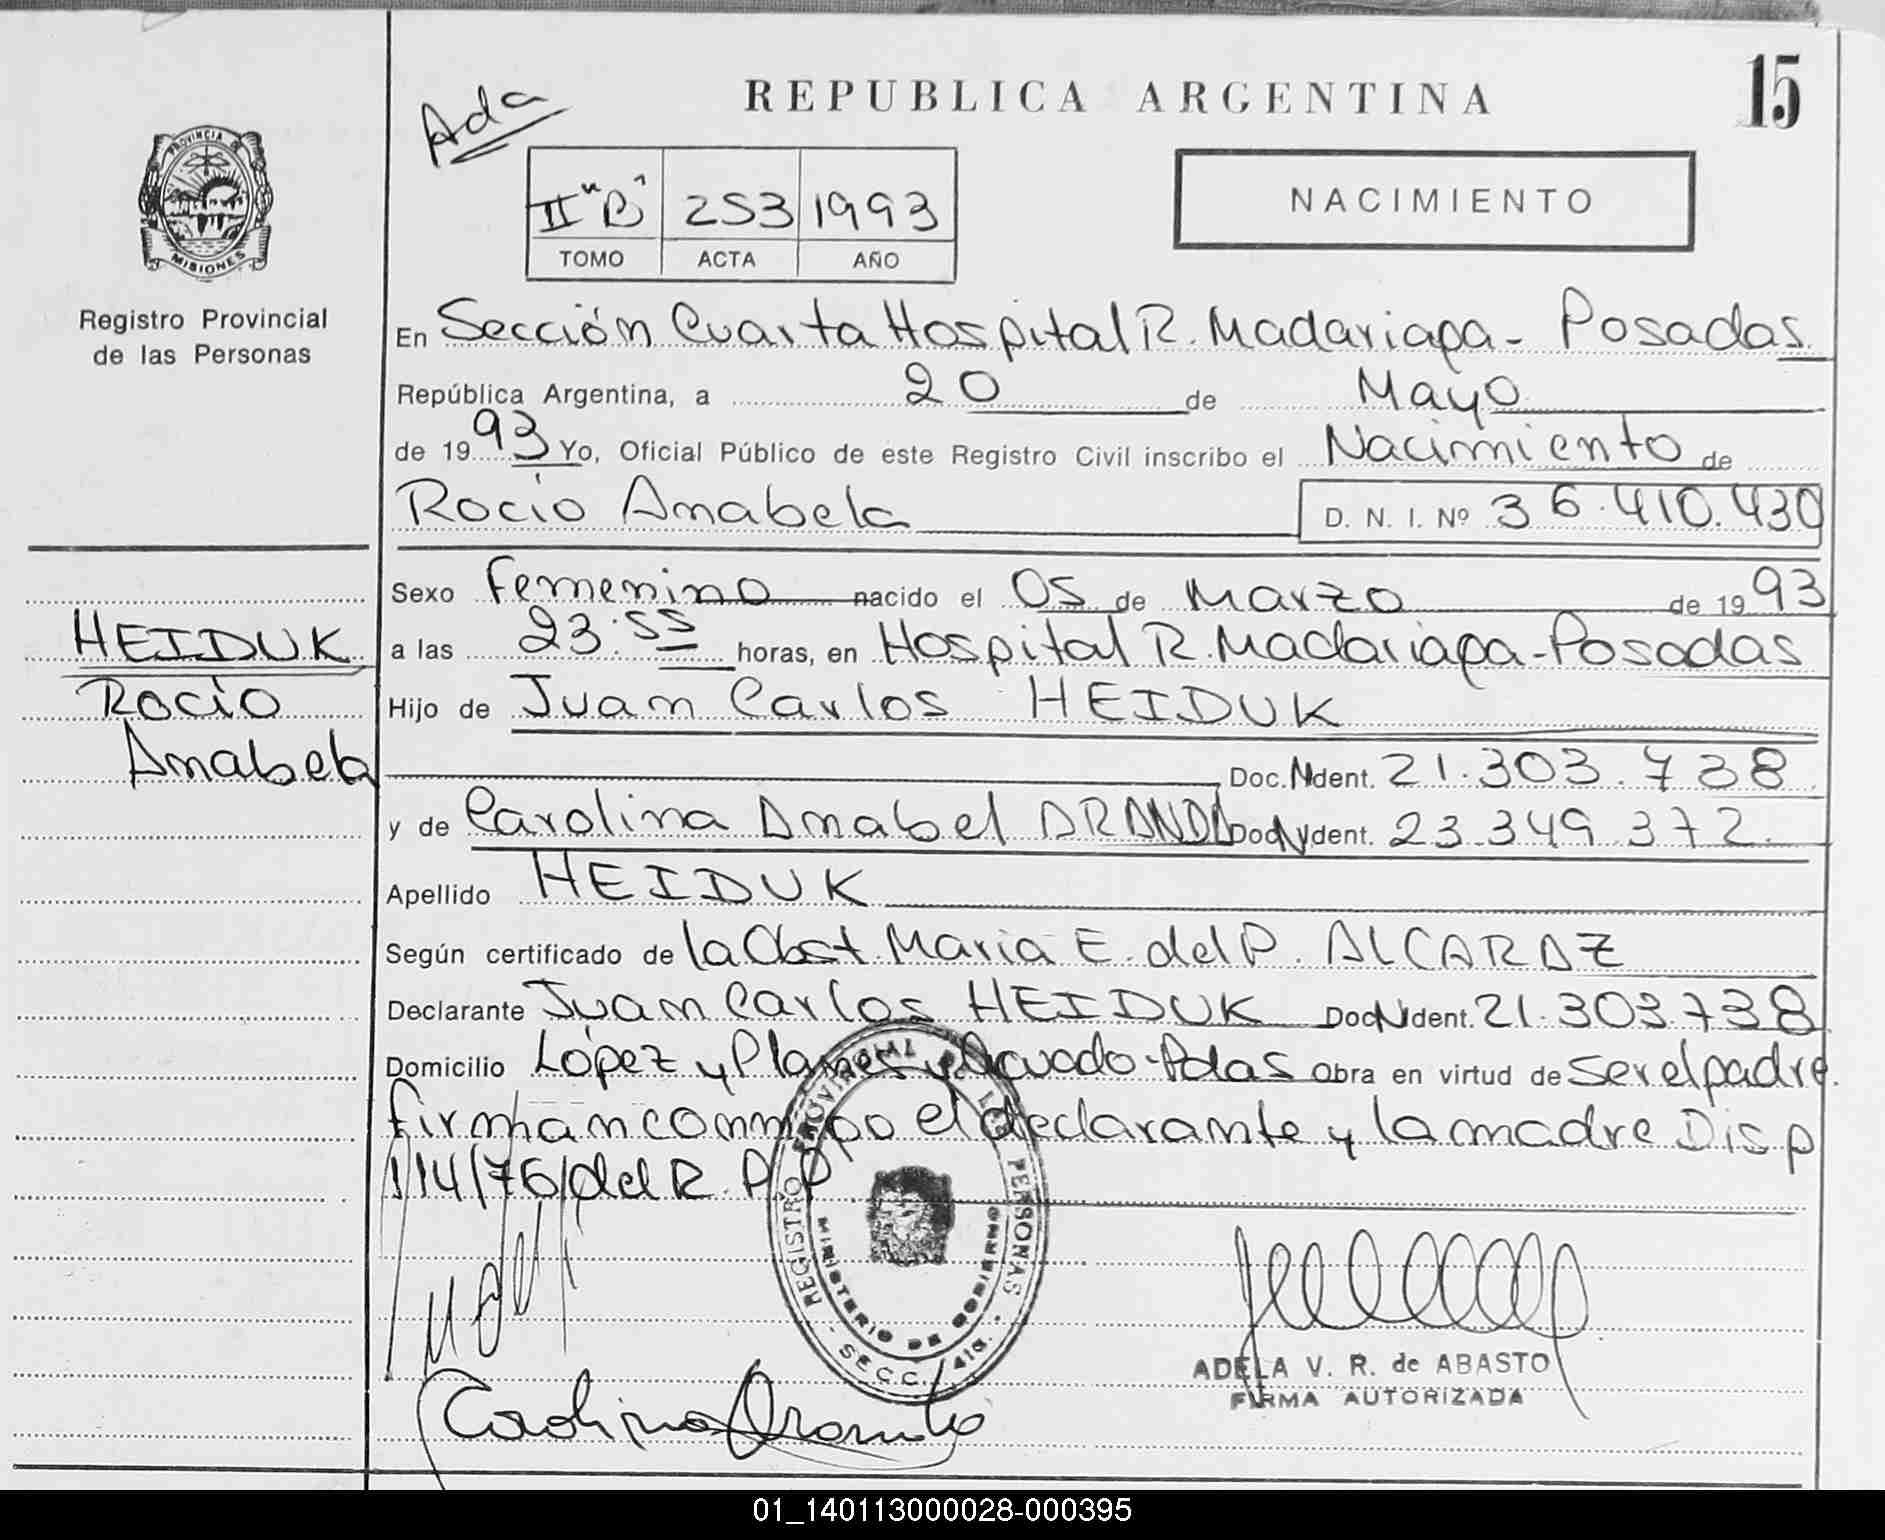 REPUBLICA ARGENTINA
15
Ada
PROVINCIA DE
MISIONES
Registro Provincial
de las Personas
II "B" 253 1993
TOMO ACTA AÑO
NACIMIENTO
En Sección Cuarta Hospital R. Madariaga - Posadas
República Argentina, a 20 de Mayo
de 1993 Yo, Oficial Público de este Registro Civil inscribo el Nacimiento de
Rocío Anabela D. N. I. Nº 36.410.430
HEIDUK
Rocío
Anabela
Sexo Femenino nacido el 05 de Marzo de 1993
a las 23:55 horas, en Hospital R. Madariaga - Posadas
Hijo de Juan Carlos HEIDUK
Doc. Ident. 21.303.738
y de Carolina Anabel ARANDA Doc. Ident. 23.349.372.
Apellido HEIDUK
Según certificado de la Obst. María E. del P. ALCARAZ
Declarante Juan Carlos HEIDUK Doc. Ident. 21.303.738
Domicilio López y Planes y Acuado - Pdas Obra en virtud de ser el padre.
Firman conmigo el declarante y la madre Disp
114/76 del R.P.P.
REGISTRO PROVINCIAL DE LAS PERSONAS
MINISTERIO DE GOBIERNO
- SECC. 4ta. -
Carolina Aranda
ADELA V. R. de ABASTO
FIRMA AUTORIZADA
01_140113000028-000395